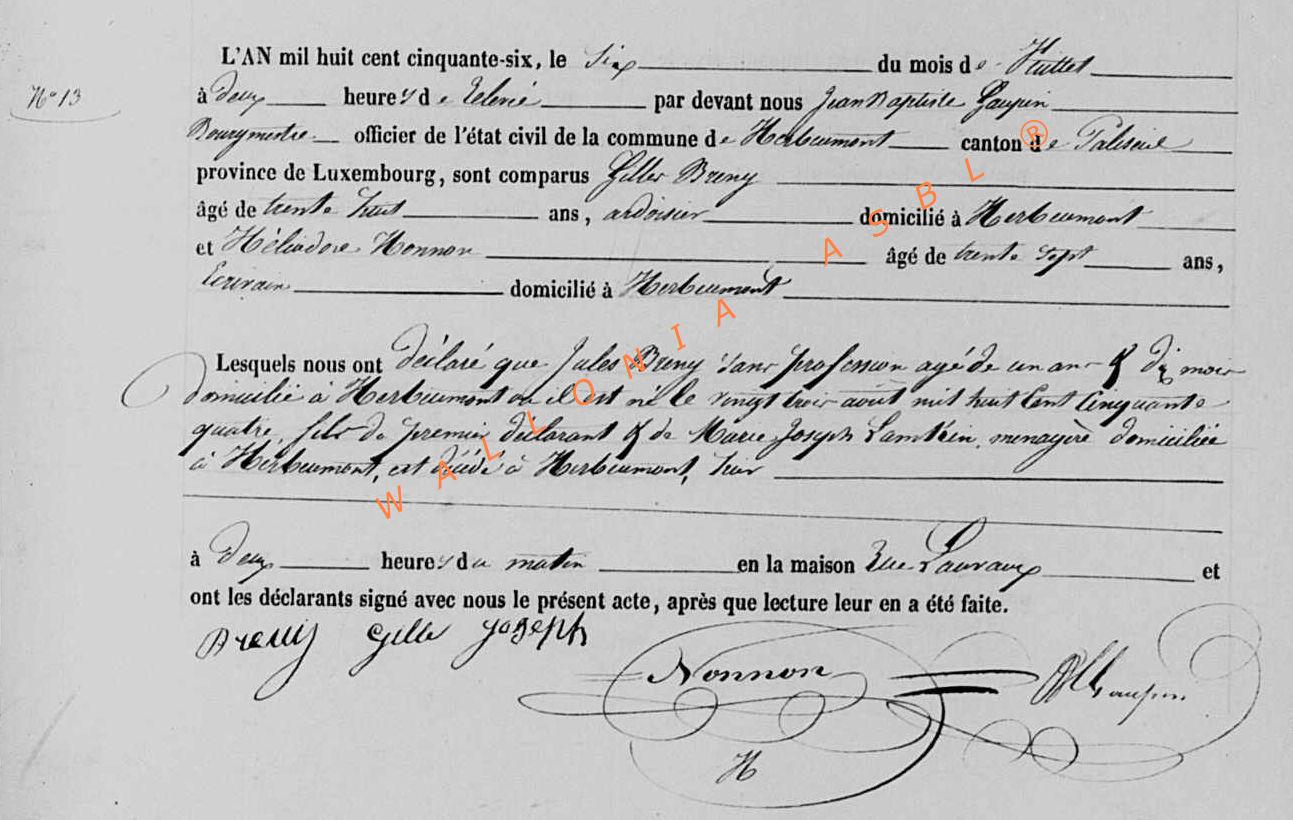 L'AN mil huit cent cinquante-six, le six du mois de Juillet
N° 13
à deux heures de relevé par devant nous Jean Baptiste Gaupin
Bourgmestre officier de l'état civil de la commune de Herbeumont canton de Paliseul
province de Luxembourg, sont comparus Gilles Breny
âgé de trente huit ans, ardoisier domicilié à Herbeumont
et Héliodore Nonnon âgé de trente sept ans,
Ecrivain domicilié à Herbeumont
Lesquels nous ont déclaré que Jules Breny sans profession agé de un an & dix mois
domicilié à Herbeumont ou il est né le vingt trois août mil huit cent cinquante
quatre, fils du premier déclarant & de Marie Joseph menagère domiciliée
à Herbeumont, est décédé à Herbeumont, hier
à deux heures du matin en la maison Rue Lauvaux et
ont les déclarants signé avec nous le présent acte, après que lecture leur en a été faite.
Breny Gille Joseph
Nonnon
Gaupin
H
WALLONIA ASBL ®